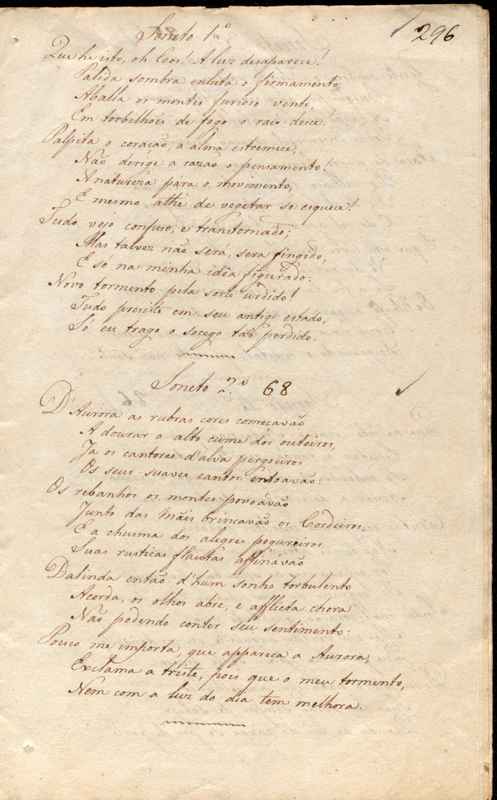 296
Soneto 1º
Que he isto, oh Ceos! A luz desaparece!
Palida sombra enluta o firmamento,
Aballa os montes furioso vento,
Em torbelhões de fogo o raio dece.
Palpita o coração, a alma estremece,
Não derige a razao o pensamento!
A natureza para o movimento,
E mesmo athe de vegetar se esquece!
Tudo vejo confuso, e transtornado;
Mas talvez não será, sera fingido,
E só na minha idêa figurado:
Novo tormento pela sorte urdido!
Tudo preziste em seu antigo estado,
Só eu trago o socego tão perdido.
Soneto 2º 68
D'Aurora as rubras cores começavão
A dourar o alto cume dos outeiros,
Ja os cantores d'alva pergoeiros
Os seus suaves cantos entoavão
Os rebanhos os montes povoávão
Junto das Mãis brincavão os Cordeiros,
E a chusma dos alegres pegureiros
Suas rusticas flautas affinavão
Dalinda então d'hum sonho torbulento
Acorda, os olhos abre, e afflicta chora
Não podendo conter seu sentimento:
Pouco me importa, que appareça a Aurora,
Exclama a triste, pois que o meu tormento,
Nem com a luz do dia tem melhora.